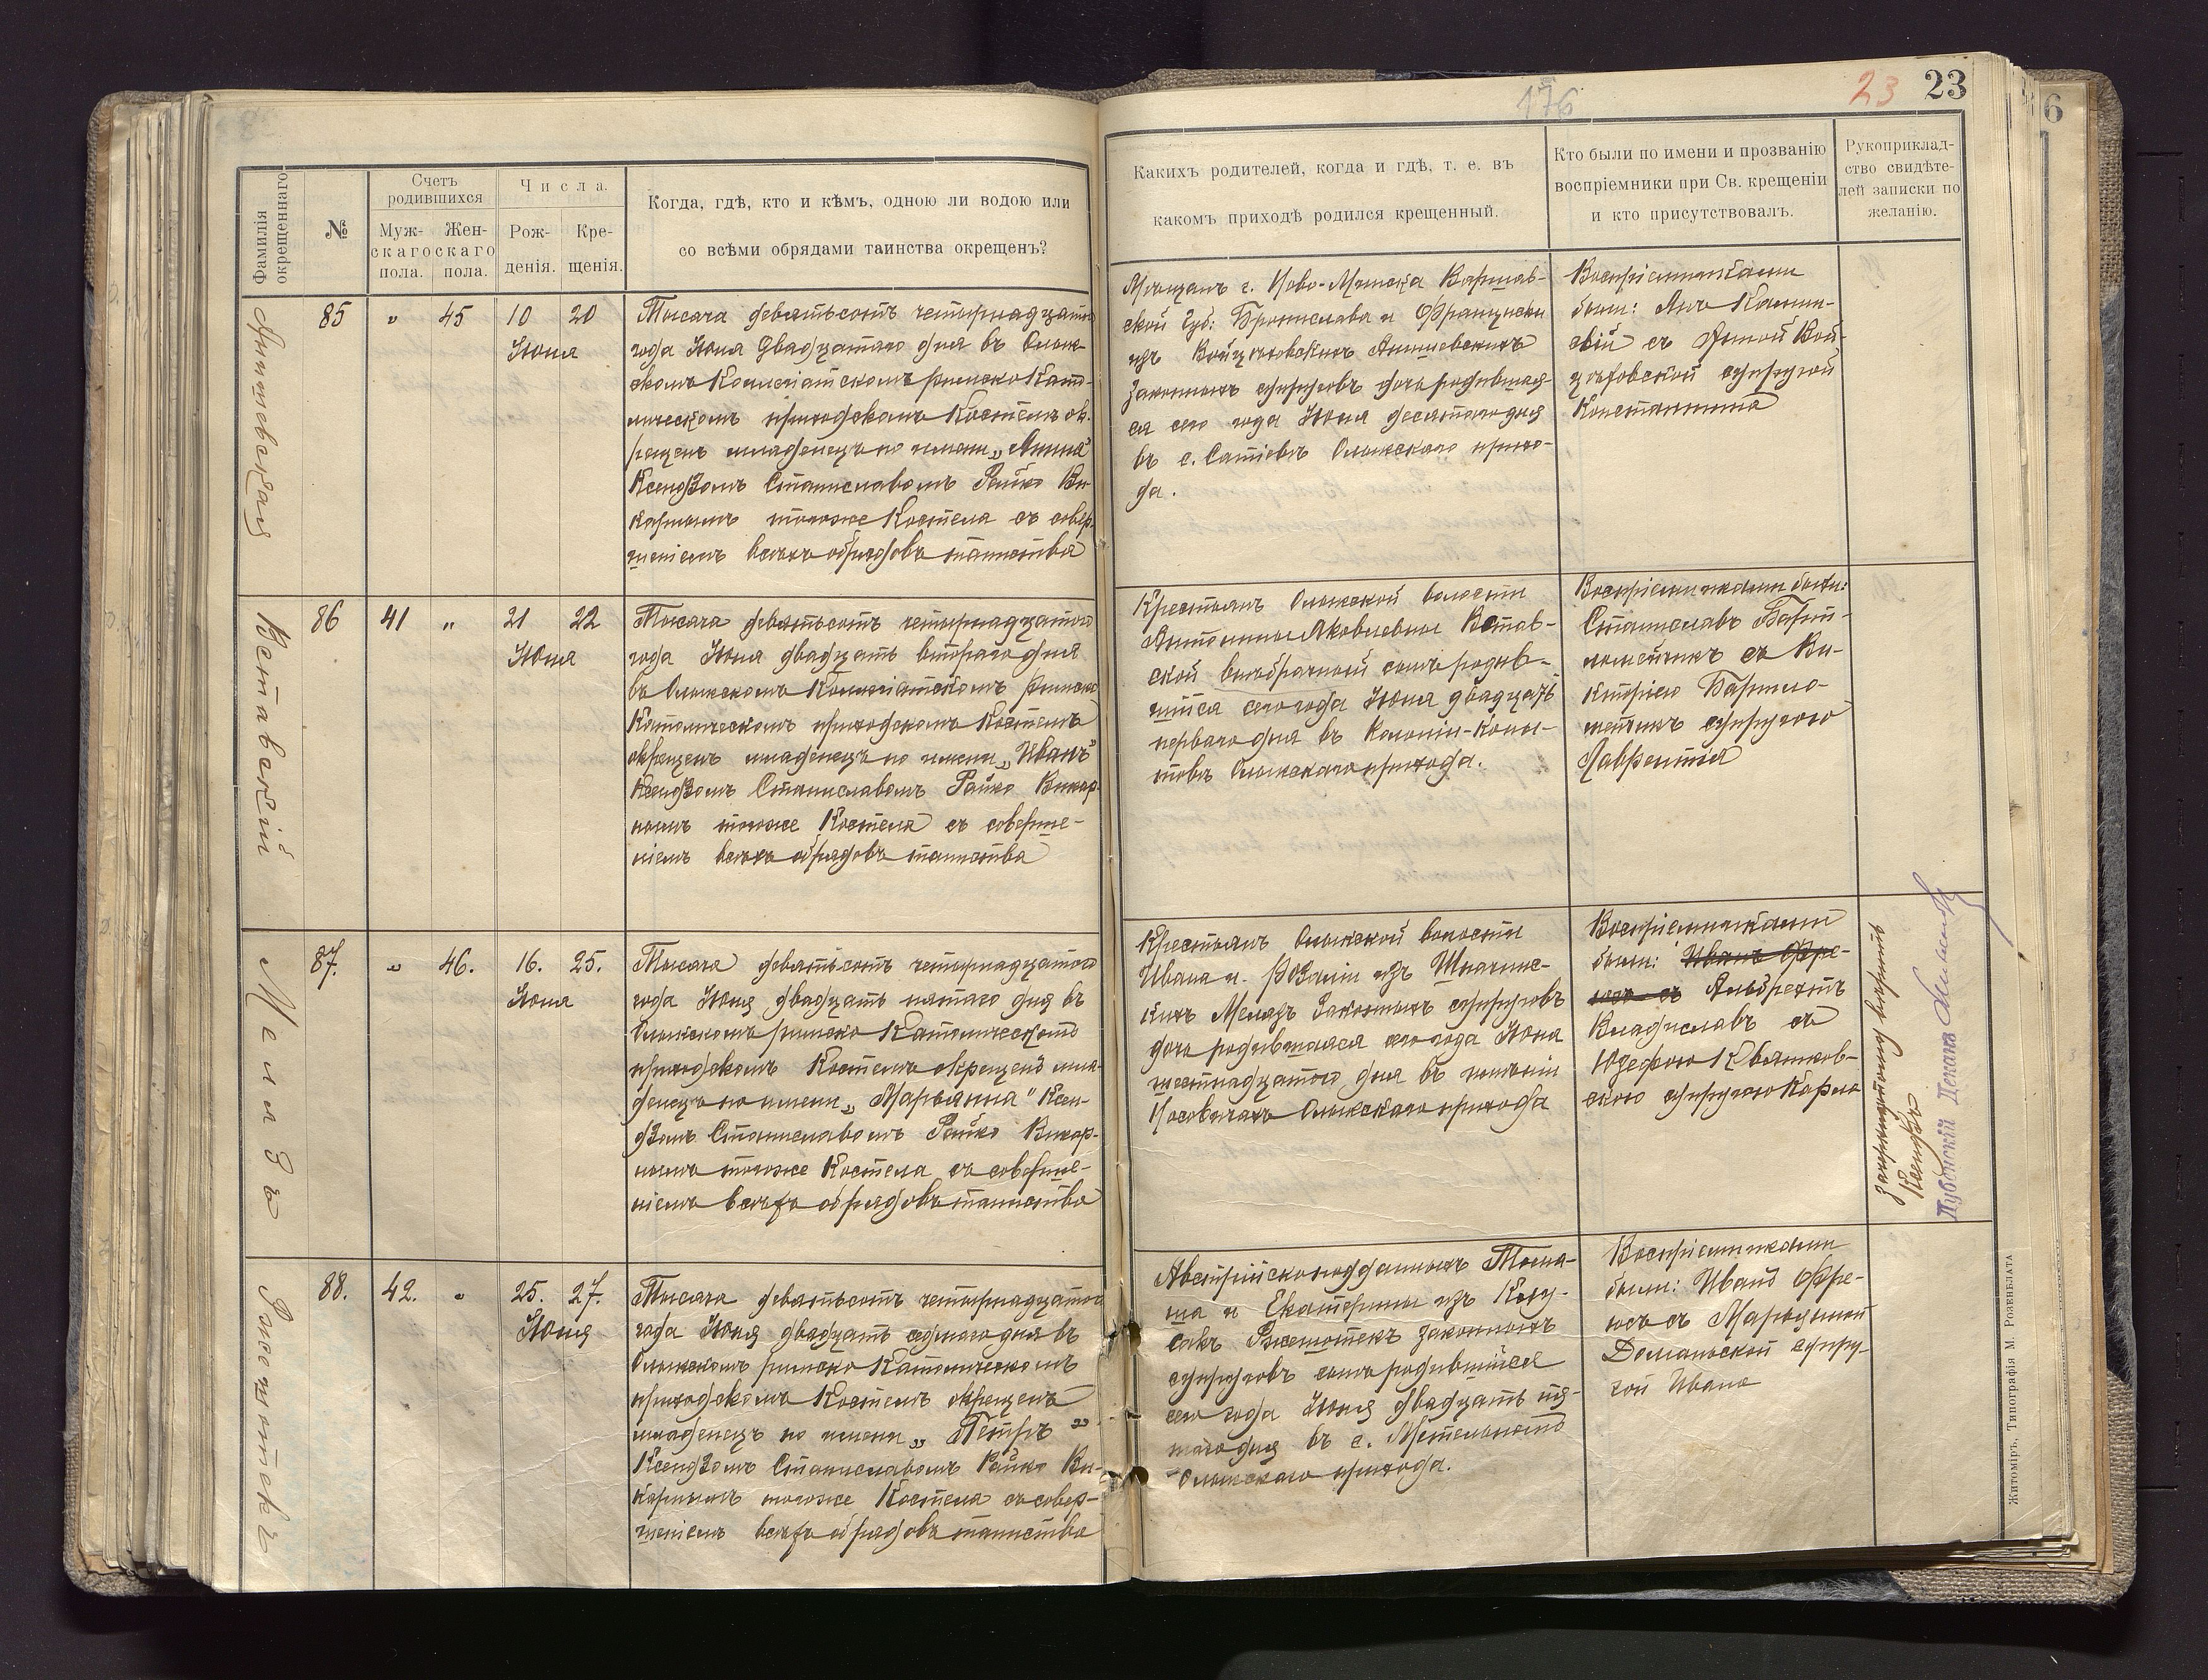 176
23
23
6
Фамилія окрещеннаго
№
Счетъ родившихся
Муж-скаго пола.
Жен-скаго пола.
Числа.
Рож-денія.
Кре-щенія.
Когда, гдѣ, кто и кѣмъ, одною ли водою или
со всѣми обрядами таинства окрещенъ?
Каихъ родителей, когда и гдѣ, т. е. въ
какомъ приходѣ родился крещенный.
Кто были по имени и прозванію
воспріемники при Св. крещеніи
и кто присутствовалъ.
Рукоприклад-
ство свидѣте-
лей записки по
желанію.
85 " 45 10 20
Іюня
Тысяча девятьсотъ четырнадцатаго
года Іюня двадцатаго дня въ Олык-
скомъ Коллегіатскомъ римско Като-
лическомъ приходскомъ Костелѣ ок-
рещенъ младенецъ по имени „Анна"
Ксендзомъ Станиславомъ Райко Ви-
карнымъ тогоже Костела съ совер-
шеніемъ всѣхъ обрядовъ таинства
Мѣщанъ г. Ново-Минска Варшав-
ской губ: Бронислава и Франциски
изъ
законныхъ супруговъ дочь родившая-
ся сего года Іюня десятаго дня
въ с. Сатіевѣ Олыкскаго прихо-
да.
Воспріемниками
были: Янъ Камин-
скій съ Анной Вой-
цѣховской супругой
Константина
Вставскій
86 41 " 21 22
Іюня
Тысяча девятьсотъ четырнадцатаго
года Іюня двадцать втораго дня
въ Олыкскомъ Коллегіатскомъ римско
Католическомъ приходскомъ Костелѣ
окрещенъ младенецъ по имени „Иванъ"
Ксендзомъ Станиславомъ Райко Викар-
нымъ тогоже Костела съ соверше-
ніемъ всѣхъ обрядовъ таинства
Крестьянъ Олыкской волости
Антонины Яковлевны Встав-
ской внѣбрачный сынъ родив-
шійся сего года Іюня двадцать
перваго дня въ Колоніи-Копы-
товъ Олыкскаго прихода.
Воспріемниками были:
Станиславъ
съ Ви-
кторіею
супругою
Лаврентія
Мелязъ
87. " 46. 16. 25.
Іюня
Тысяча девятьсотъ четырнадцатаго
года Іюня двадцать пятаго дня въ
Олыкскомъ римско Католическомъ
приходскомъ Костелѣ окрещенъ мла-
денецъ по имени „Марьянна" Ксен-
дзомъ Станиславомъ Райко Викар-
нымъ тогоже Костела съ соверше-
ніемъ всѣхъ обрядовъ таинства
Крестьянъ Олыкской волости
Ивана и Розаліи изъ
Мелязъ законныхъ супруговъ
дочь родившаяся сего года Іюня
шестнадцатаго дня въ имѣніи
Носовичахъ Олыкскаго прихода
Воспріемниками
были: Иванъ Фре-
съ Альбрехтъ
Владиславъ съ
Юзефою Квятков-
скою супругою Карла
зачеркнутому вѣрить
Ксендзъ
Дубенскій Деканъ
88. 42. " 25. 27.
Іюня
Тысяча девятьсотъ четырнадцатаго
года Іюня двадцать седмаго дня въ
Олыкскомъ римско Католическомъ
приходскомъ Костелѣ окрещенъ
младенецъ по имени „Петръ"
Ксендзомъ Станиславомъ Райко Ви-
карнымъ тогоже Костела съ совер-
шеніемъ всѣхъ обрядовъ таинства
Австрійскоподданныхъ Тома-
ша и Екатерины изъ
законныхъ
супруговъ сынъ родившійся
сего года Іюня двадцать пя-
таго дня въ с. Метельномъ
Олыкскаго прихода.
Воспріемниками
были: Иванъ Фре-
съ Марьянной
Доманьской супру-
гой Ивана
Житомiръ, Типографія М. Розенблата